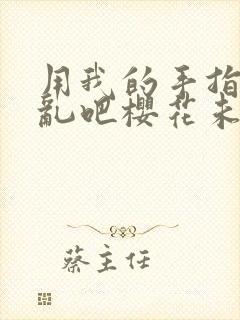 用我的手指
亂吧櫻花未
蔡主任